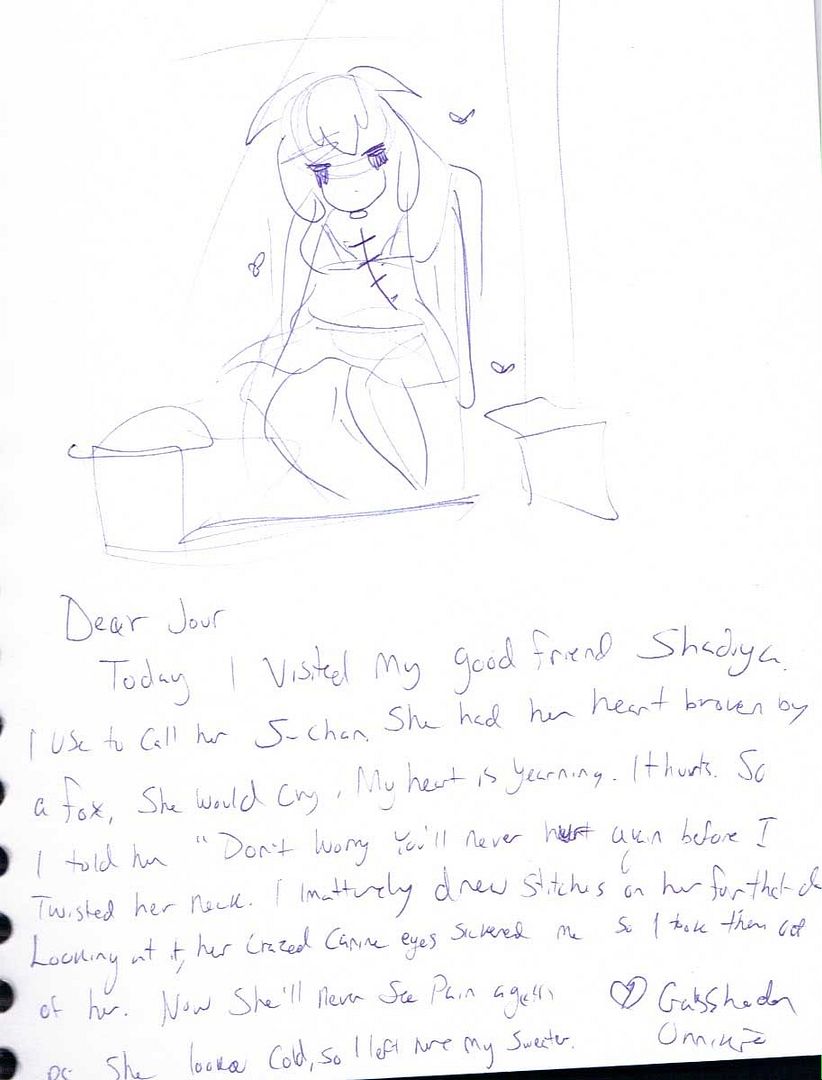 Dear Jour
Today I Visited My good friend Shadiya.
I use to Call her S-chan. She had her heart broken by
a fox, She would Cry, My heart is yearning. It hurts. So
I told her "Don't worry You'll never hurt again before I
Twisted her neck. I Imatturely drew Stitches on her for that
Looking at it, her Crazed Canine eyes Sickened me So I took them out
of her. Now She'll never See Pain again
PS She looked Cold, so I left her my Sweater.